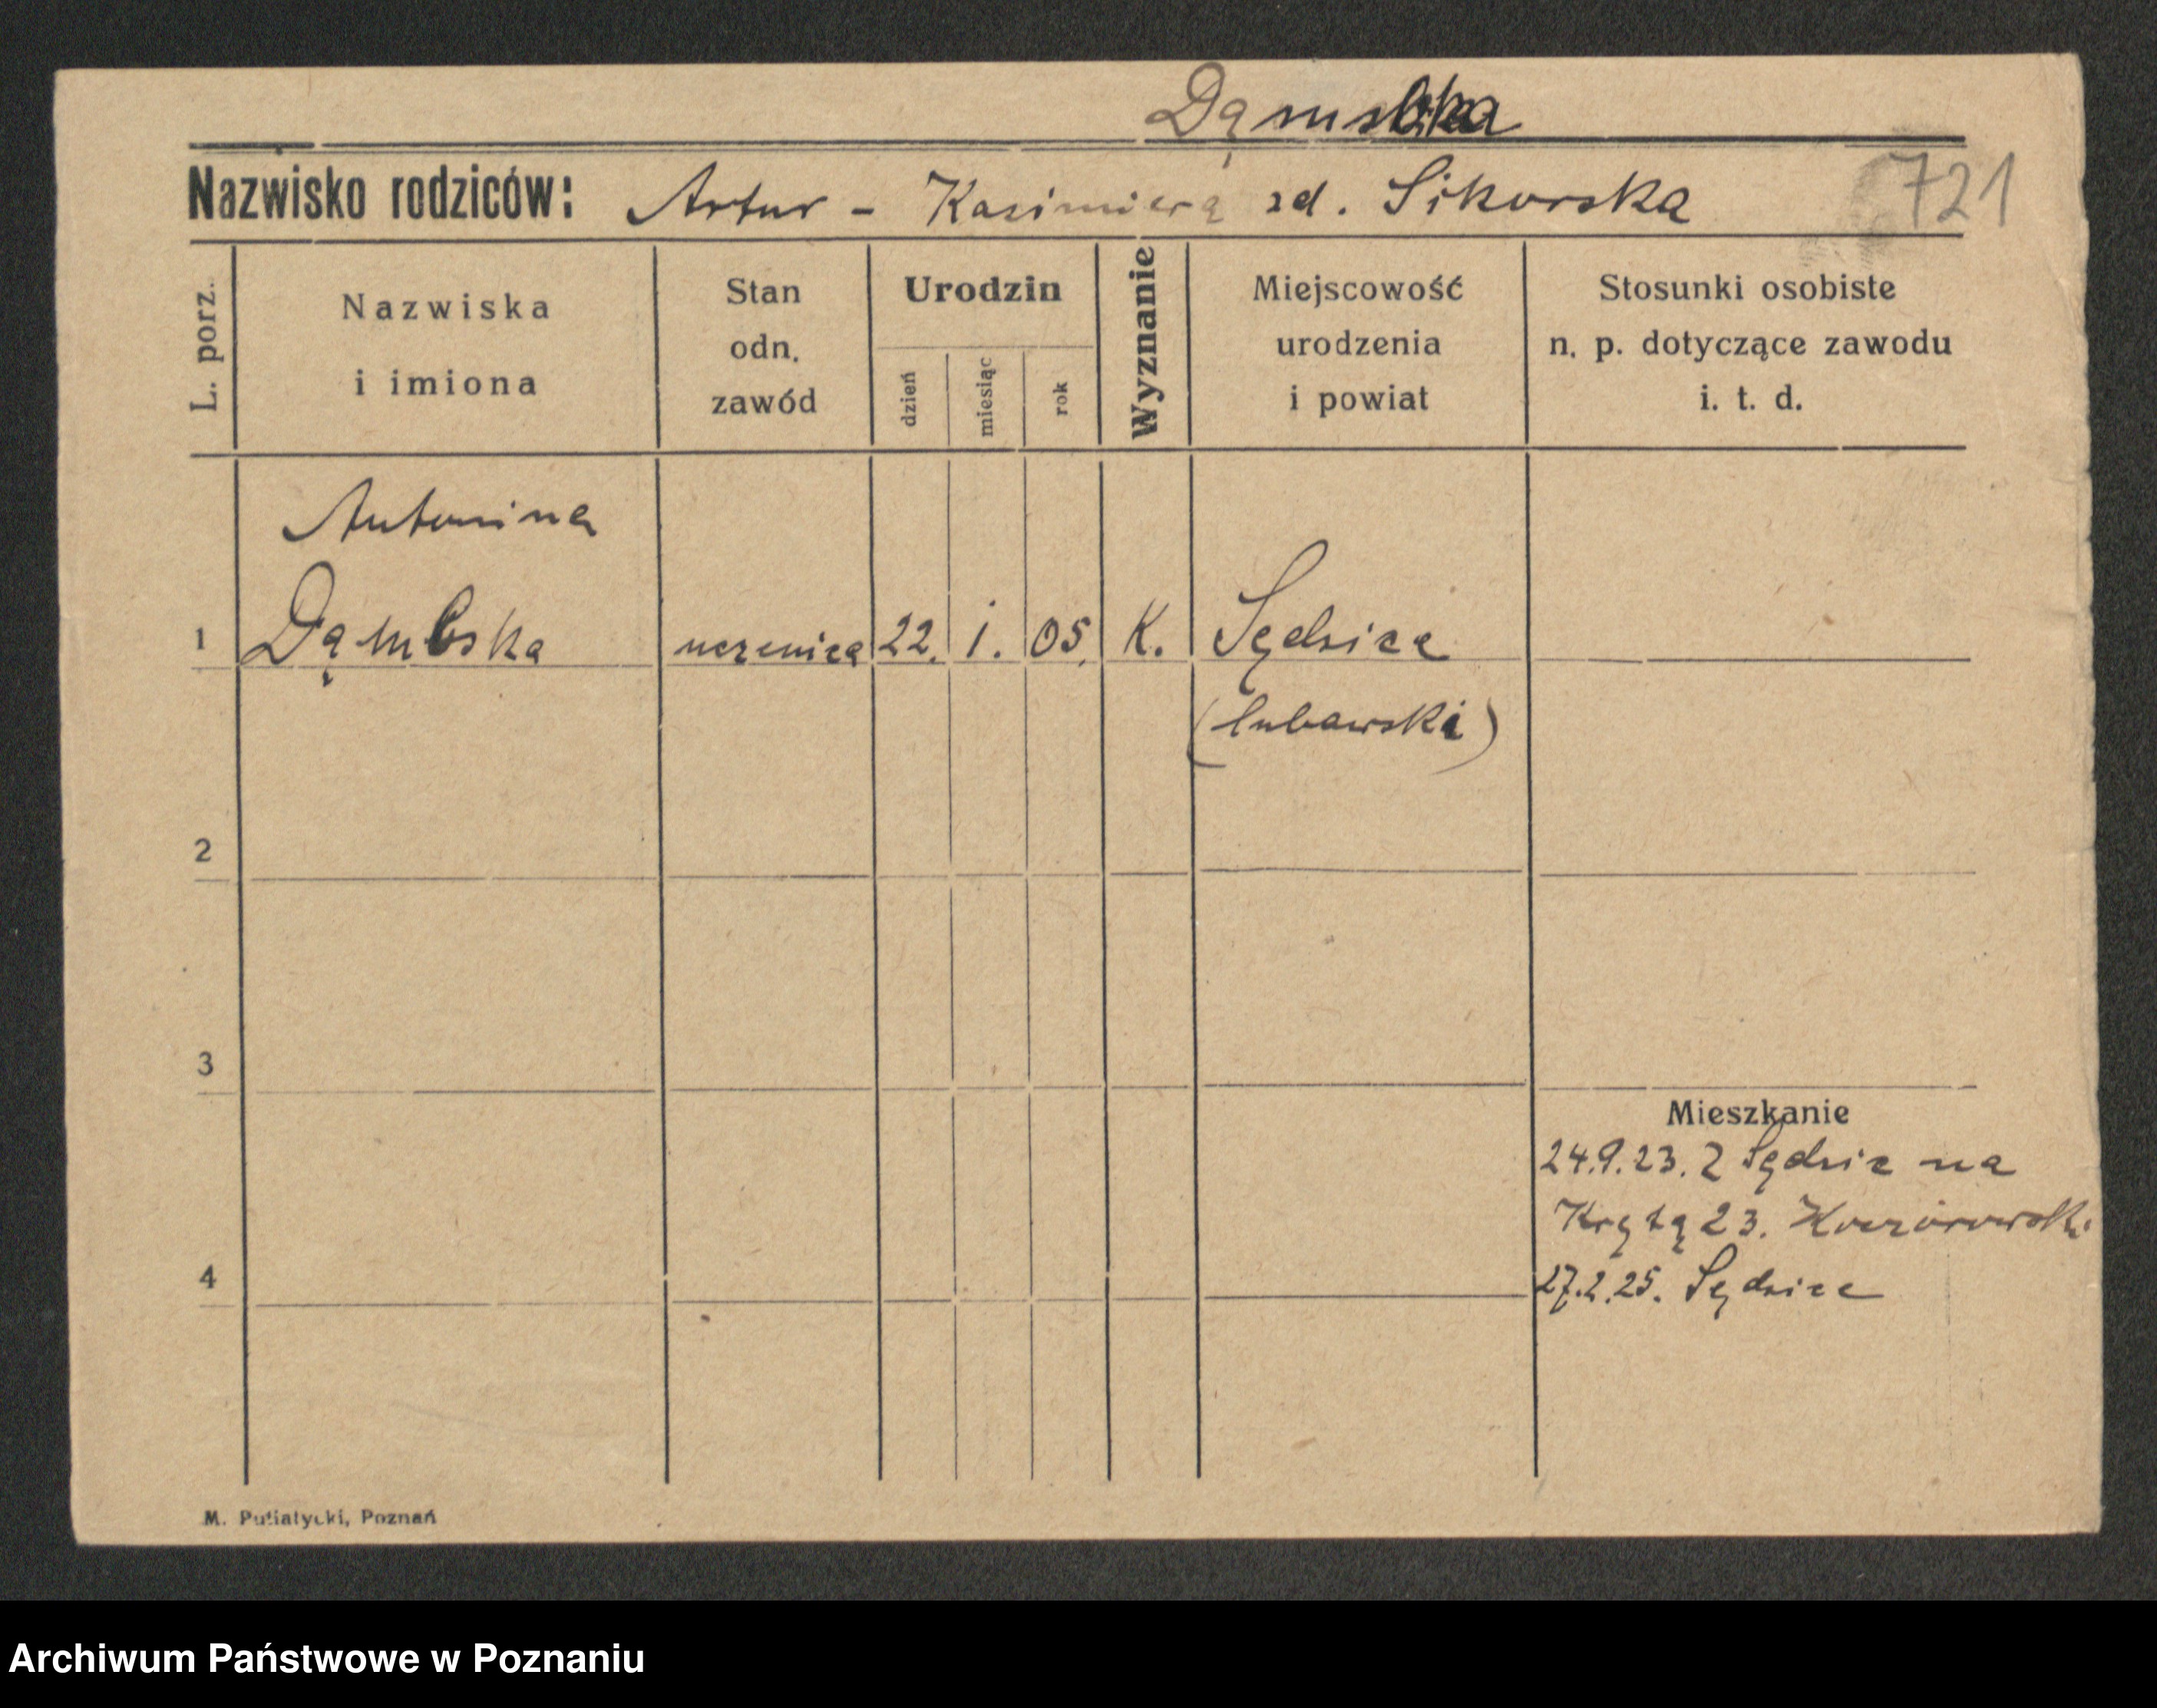 Dąmbska
Nazwisko rodziców: Artur - Kazimierą zd. Sikorska 721
L. porz.
Nazwiska
i imiona
Stan
odn.
zawód
Urodzin
dzień
miesiąc
rok
Wyznanie
Miejscowość
urodzenia
i powiat
Stosunki osobiste
n. p. dotyczące zawodu
i. t. d.
Antonina
1 Dąmbska uczenica 22. 1. 05. K. Sędzice
(lubawski)
2
3
Mieszkanie
24.9.23. Z Sędzic na
Krętą 23. Koczorowski
4 27.2.25. Sędzice
M. Putiatycki, Poznań
Archiwum Państwowe w Poznaniu